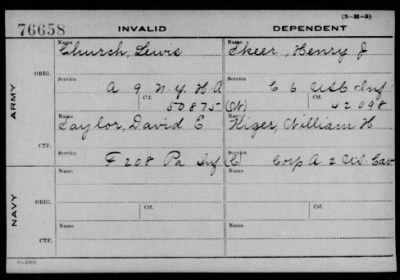 (3-M-5)
76658 INVALID DEPENDENT
Name Name
Church, Lewis Skeer, Henry J
ORIG.
Service Service
A 9 N.Y. H A C 6 US C Inf
Ctf. Ctf.
50875 (W) 42098
ARMY
Name Name
Taylor, David E Kiger, William H
CTF.
Service Service
F 208 Pa Inf (C) Corp A 2 US Cav
Name Name
ORIG.
Service Ctf. Service Ctf.
NAVY
Name Name
CTF.
Service Service